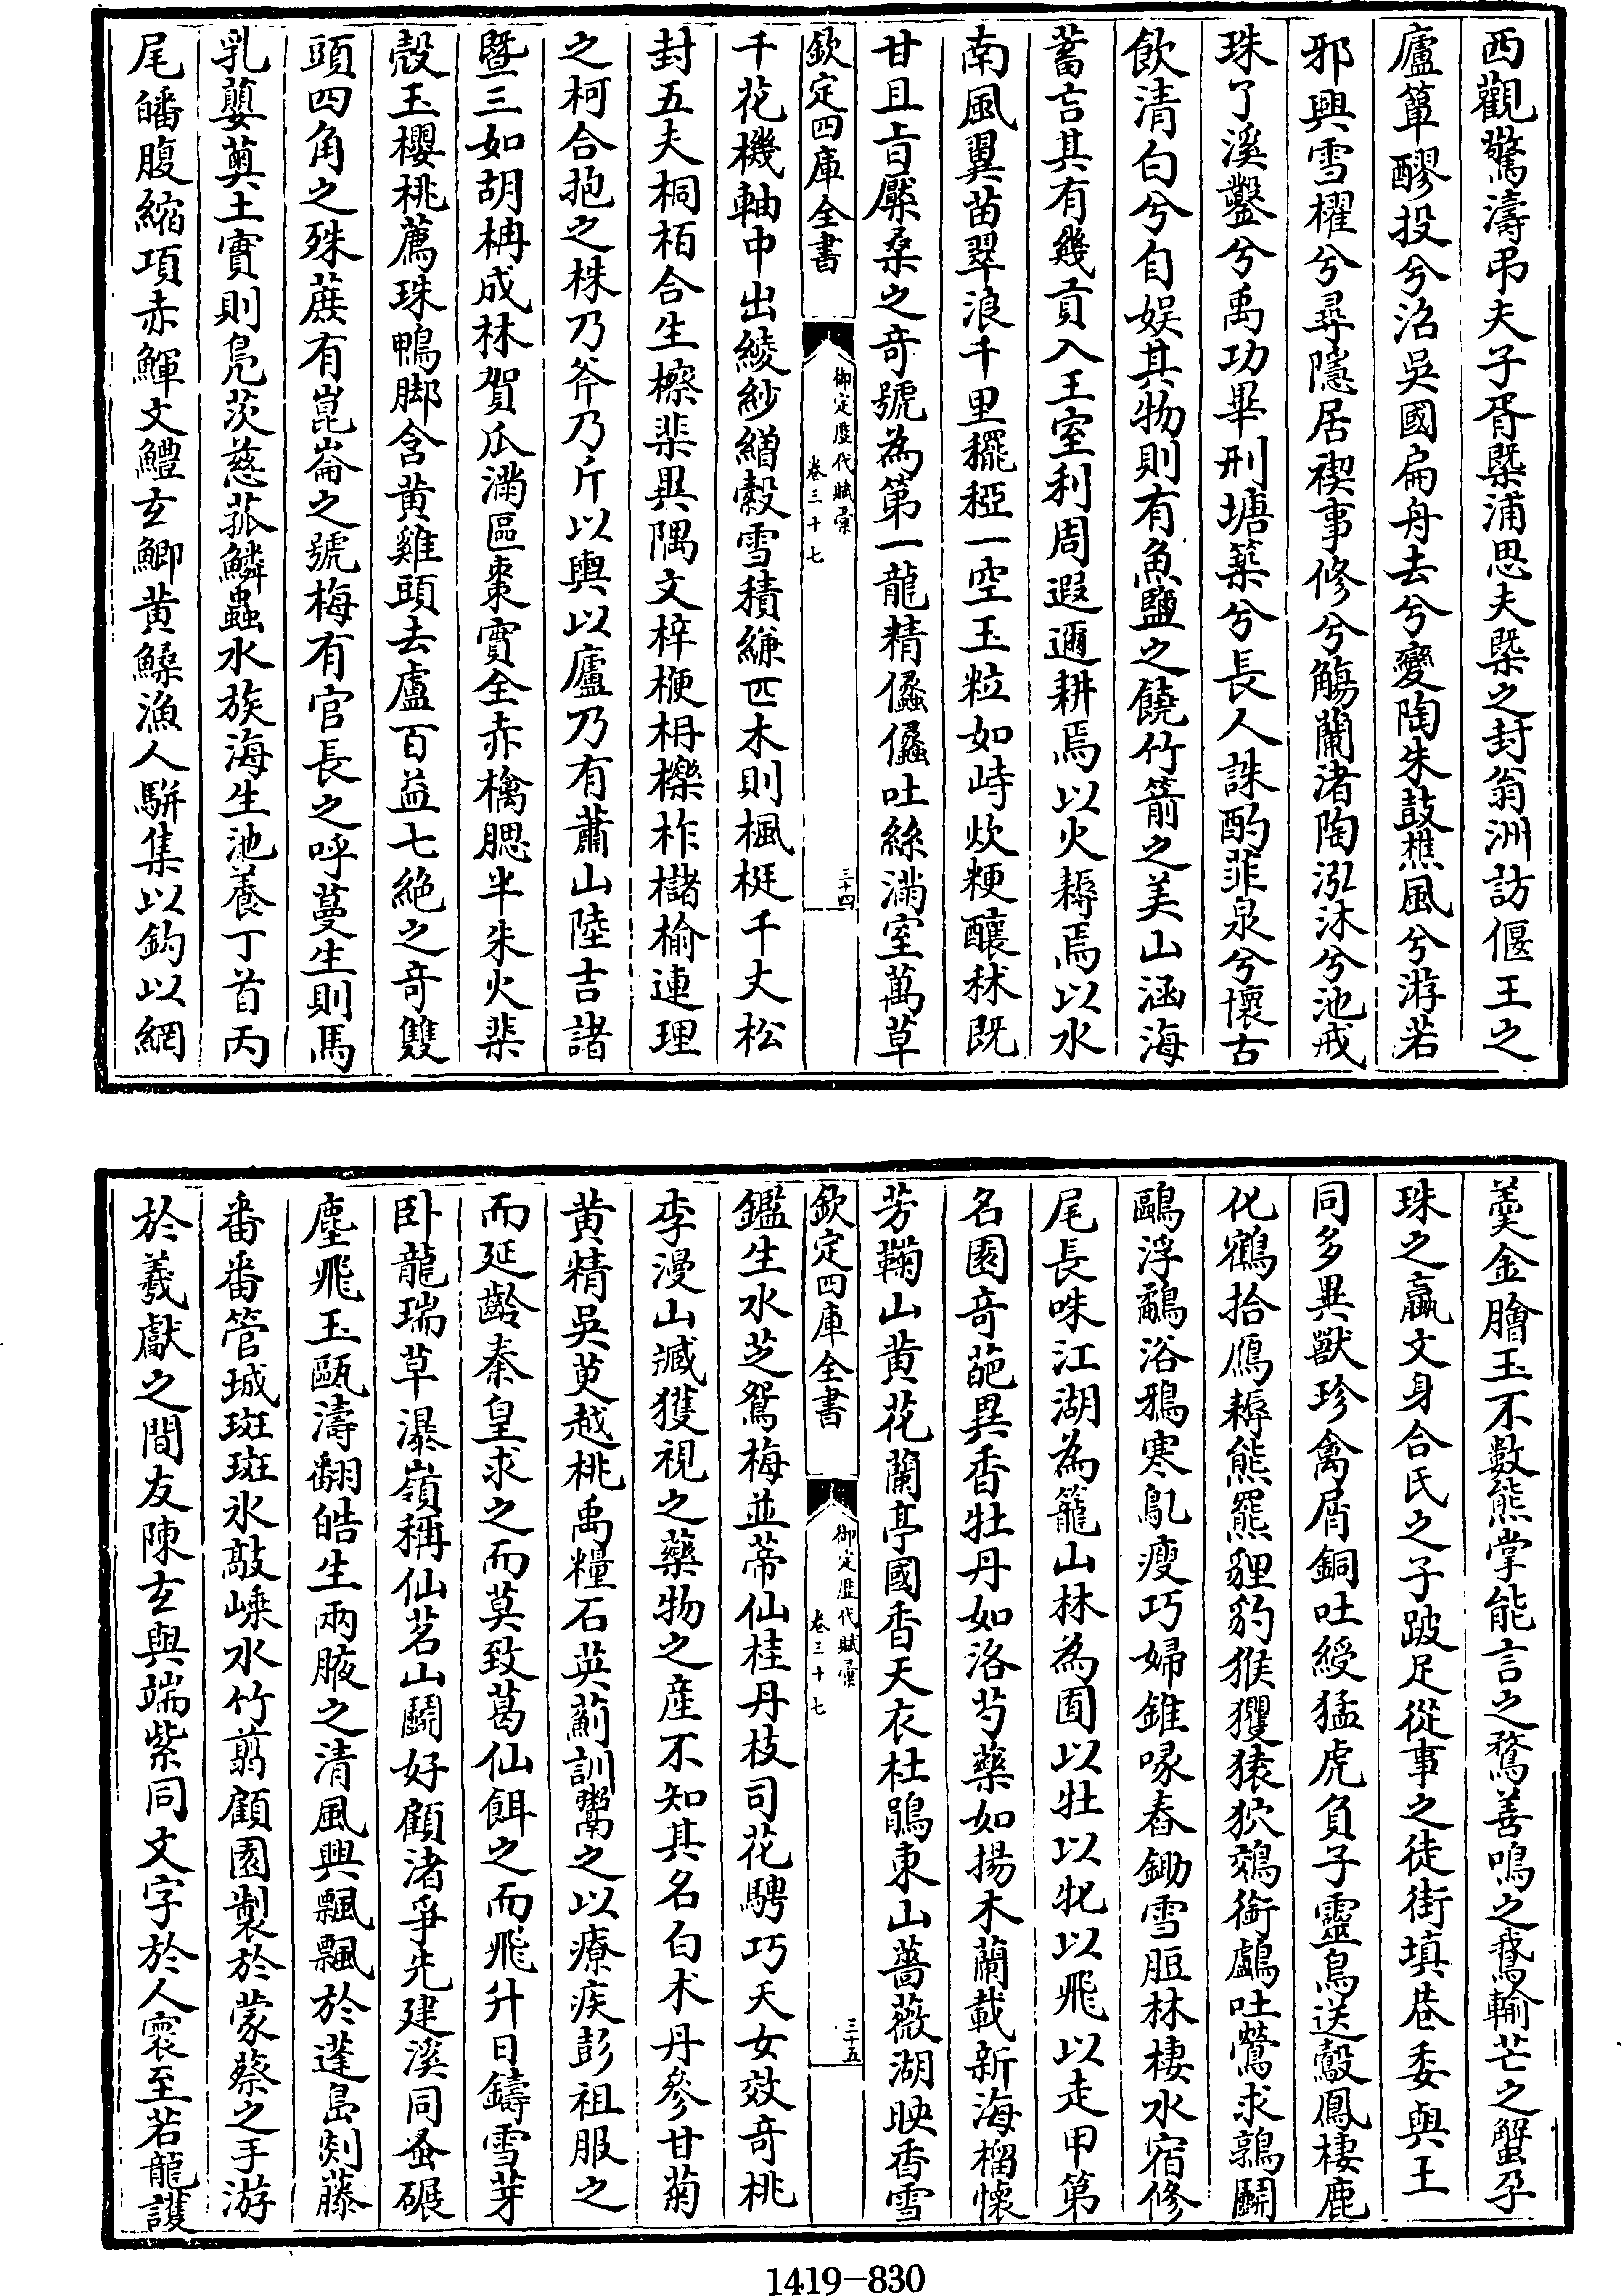 西觀驚濤弔夫子胥槩浦思夫槩之封翁洲訪偃王之
廬簞醪投兮沿吳國扁舟去兮變陶朱鼓樵風兮游若
邪興雪櫂兮尋隱居禊事修兮觴蘭渚陶泓沐兮池戒
珠了溪鑿兮禹功畢刑塘築兮長人誅酌菲泉兮懷古
飲清白兮自娱其物則有魚鹽之饒竹箭之美山涵海
蓄言其有幾貢入王室利周遐邇耕焉以火耨焉以水
南風翼苗翠浪千里䆉稏一空玉粒如峙炊粳釀秫既
甘且旨檿桑之奇號為第一龍精儽儽吐絲滿室萬草
欽定四庫全書
御定歷代賦彙
卷三十七
三十四
千花機軸中出綾紗繒縠雪積縑匹木則楓梃千丈松
封五夫桐栢合生檫棐異隅文梓楩柟櫟柞櫧榆連理
之柯合抱之株乃斧乃斤以輿以廬乃有蕭山陸吉諸
暨三如胡柟成林賀瓜滿區棗實全赤檎腮半朱火棐
殼玉櫻桃薦珠鴨脚含黄雞頭去盧百益七絶之奇雙
頭四角之殊蔗有崑崙之號梅有官長之呼蔓生則馬
乳蘡薁土實則鳧茨慈菰鱗蟲水族海生池養丁首丙
尾皤腹縮項赤鯶文鱧玄鯽黄鱨漁人駢集以鈎以網
羮金膾玉不數熊掌能言之鶩善鳴之鵞輸芒之蟹孕
珠之蠃文身合氏之子跛足從事之徒街填巷委與王
同多異獸珍禽屑銅吐綬猛虎負子靈鳥送鷇鳳棲鹿
化鶴拾鴈耨熊羆貍豹猴玃猿狖鴳銜鸕吐鶯求鶉鬭
鷗浮鷸浴鴉寒鳦瘦巧婦錐喙舂鋤雪脰林棲水宿修
尾長咮江湖為籠山林為囿以牡以牝以飛以走甲第
名園奇葩異香牡丹如洛芍藥如揚木蘭載新海榴懷
芳鞠山黄花蘭亭國香天衣杜鵑東山薔薇湖映香雪
欽定四庫全書
御定歷代賦彙
卷三十七
三十五
鑑生水芝鴛梅並蒂仙桂丹枝司花騁巧天女效奇桃
李漫山臧獲視之藥物之産不知其名白术丹參甘菊
黄精吳萸越桃禹糧石英薊訓鬻之以療疾彭祖服之
而延齡秦皇求之而莫致葛仙餌之而飛升日鑄雪芽
卧龍瑞草瀑嶺稱仙茗山鬭好顧渚爭先建溪同蚤碾
塵飛玉甌濤翻皓生兩腋之清風興飄飄於蓬島剡藤
番番管城斑斑氷敲嵊水竹翦顧園製於蒙蔡之手游
於羲獻之間友陳玄與端紫同文字於人寰至若龍護
1419—830